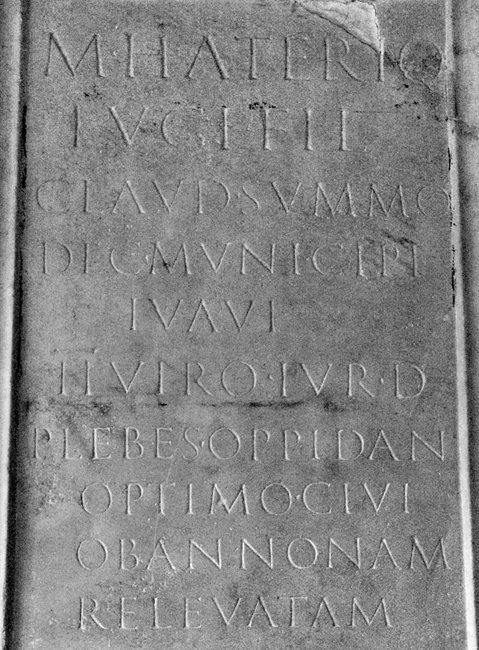 M·HATERIO
LVCI·FIL
CLAVD·SVMMO
DEC·MVNICIPI
IVAVI
IIVIRO·IVR·D
PLEBES·OPPIDAN
OPTIMO·CIVI
OB·ANNONAM
RELEVATAM